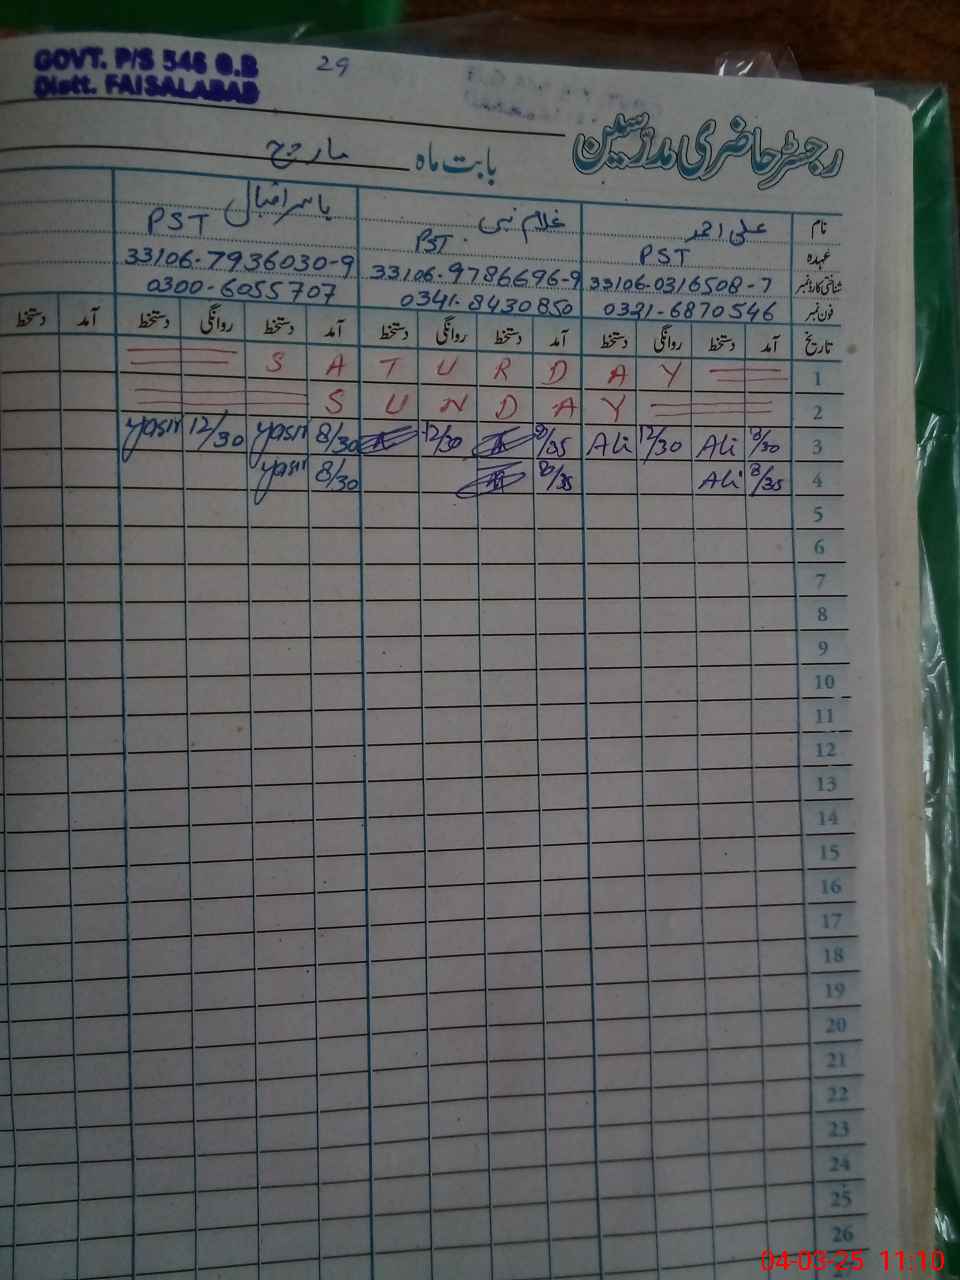 GOVT. P/S 546 G.B
Distt. FAISALABAD
29
رجسٹر حاضری مدرسین
بابت ماہ مارچ
نام علی احمد غلام نبی یاسر اقبال
عہدہ PST PST PST
شناختی کارڈ نمبر 33106-0316508-7 33106-9786696-9 33106-7936030-9
فون نمبر 0321-6870546 0341-8430850 0300-6055707
تاریخ آمد دستخط روانگی دستخط آمد دستخط روانگی دستخط آمد دستخط روانگی دستخط آمد دستخط
1 SATURDAY
2 SUNDAY
3 8/30 Ali 12/30 Ali 8/35 12/30 8/30 yasir 12/30 yasir
4 8/35 Ali 8/35 8/30 yasir
5
6
7
8
9
10
11
12
13
14
15
16
17
18
19
20
21
22
23
24
25
26
04-03-25 11:10